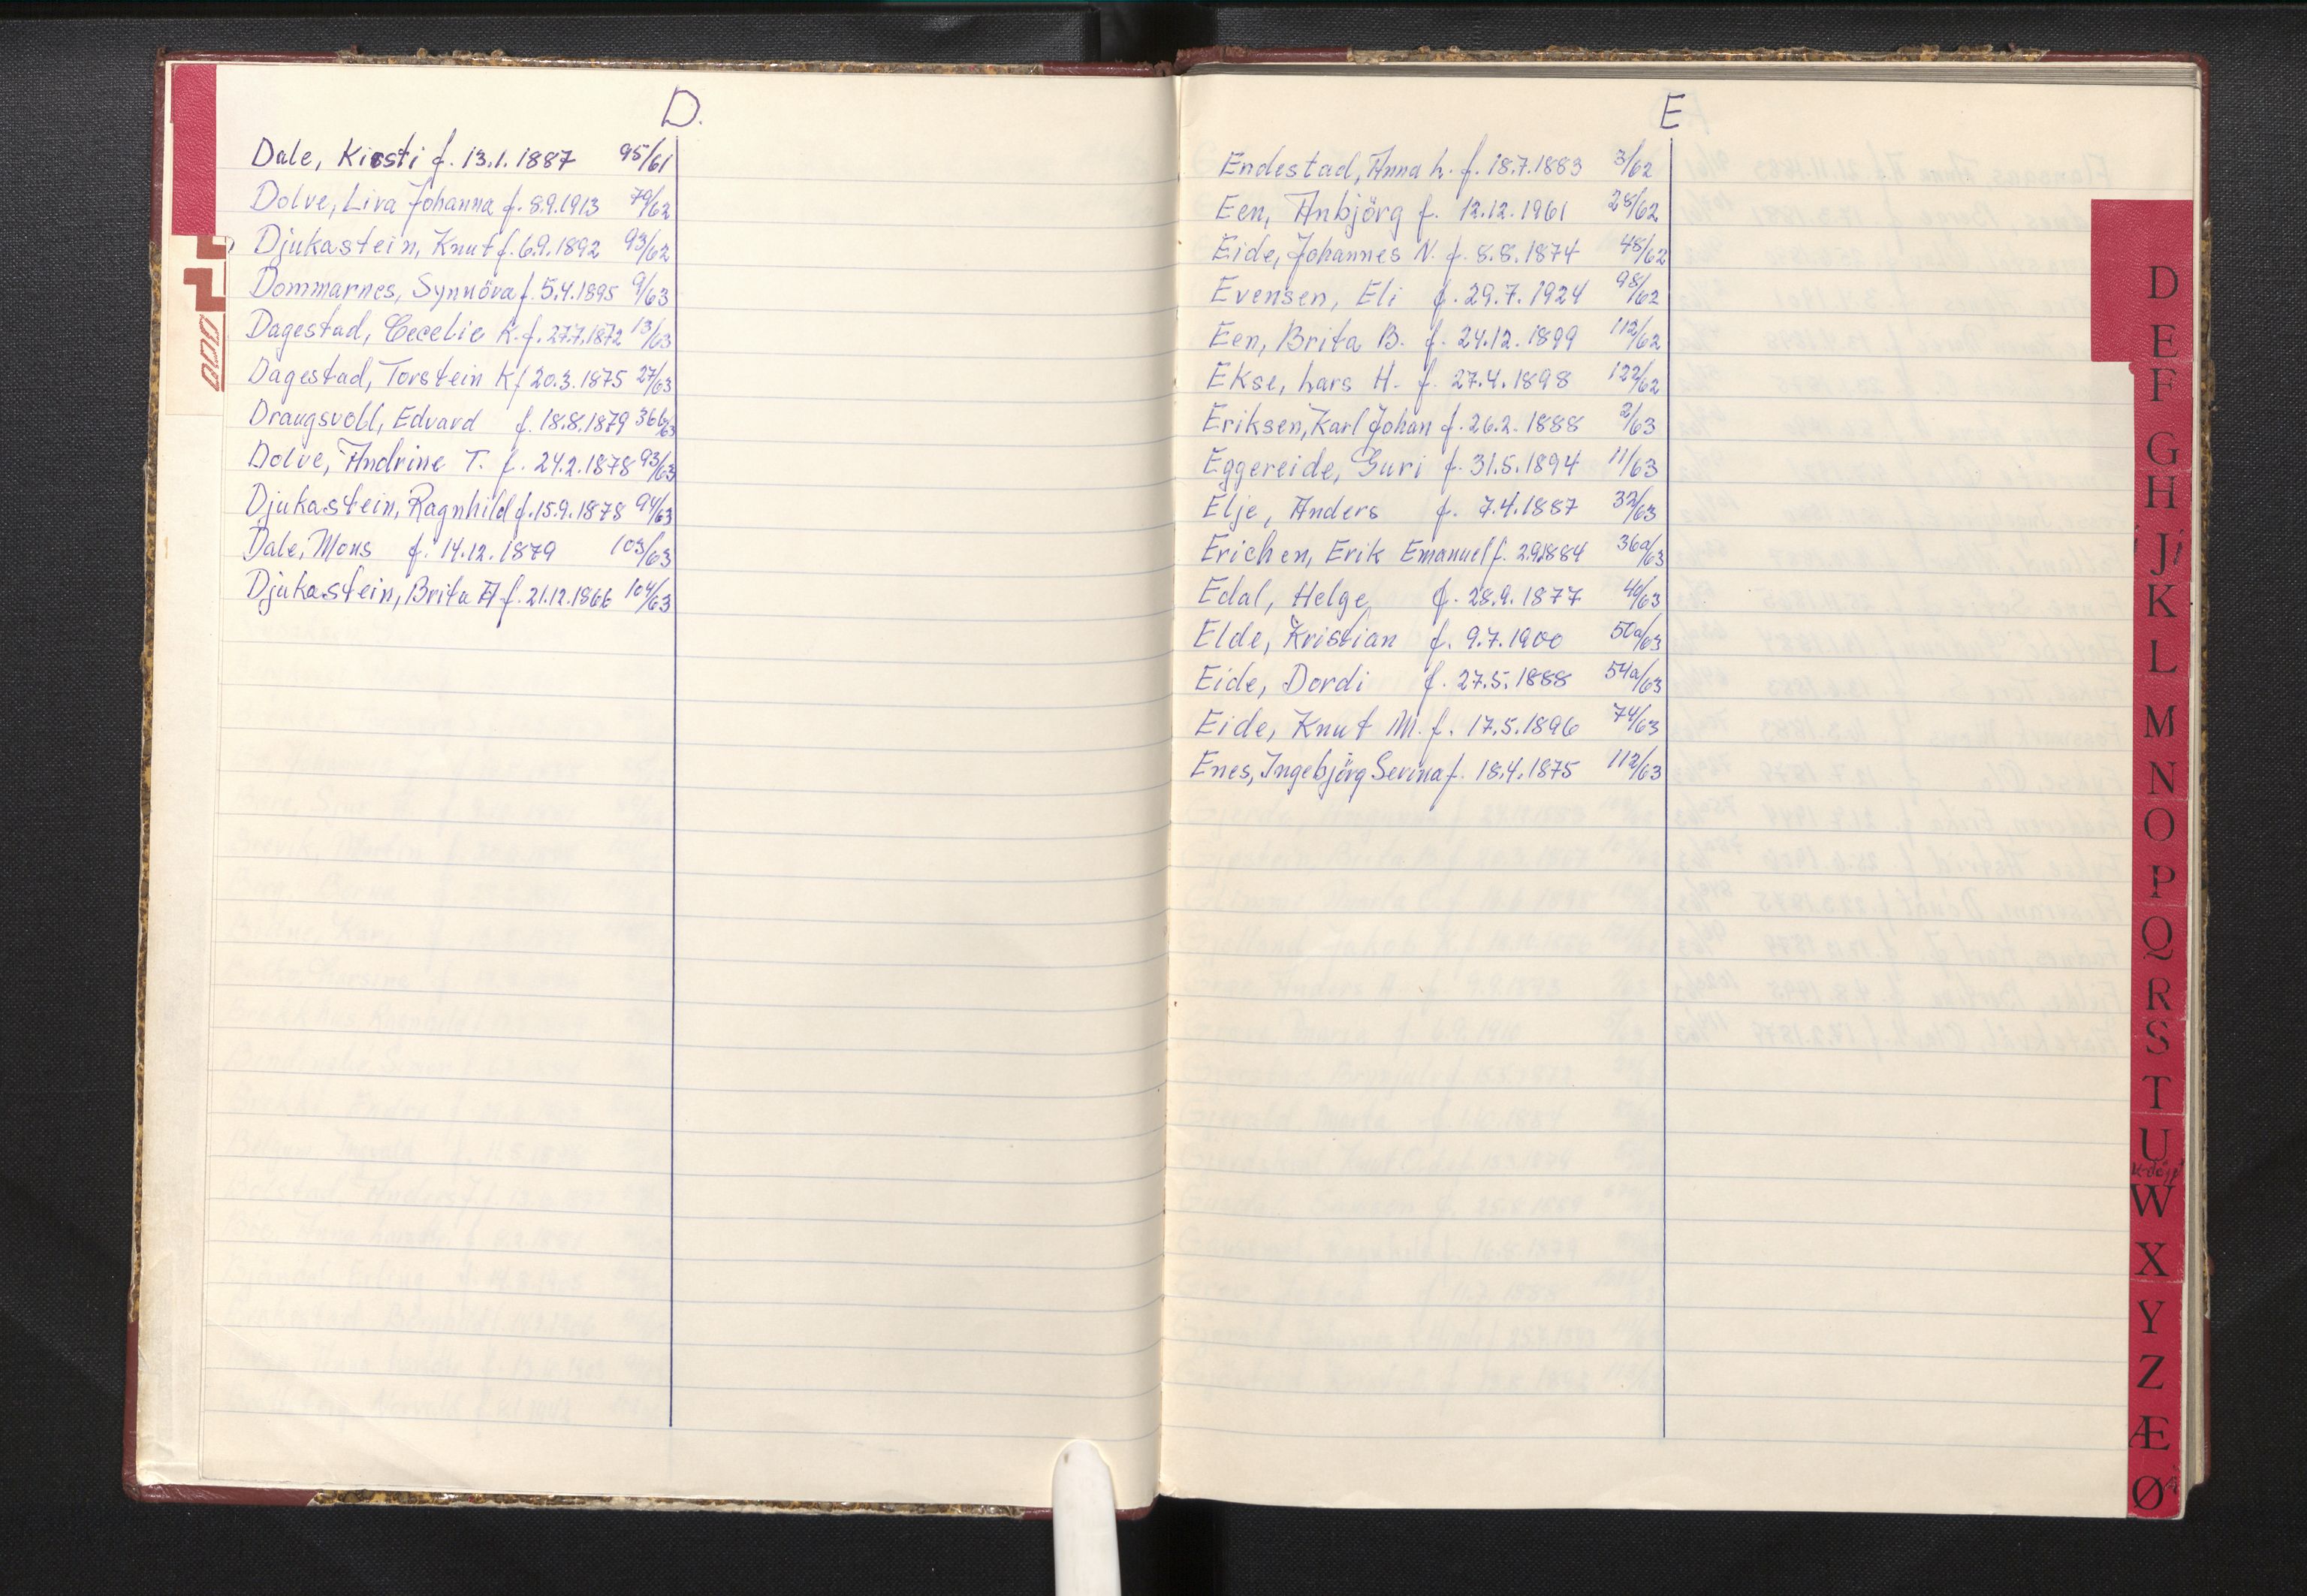 D.
Dale, Kirsti f. 13.1.1887 95/61
Dolve, Liva Johanna f. 8.9.1913 79/62
Djukastein, Knut f. 6.9.1892 93/62
Dommarnes, Synnöva f. 5.4.1895 9/63
Dagestad, Cecelie K. f. 27.7.1872 13/63
Dagestad, Torstein K f 20.3.1875 27/63
Draugsvoll, Edvard f. 18.8.1879 36b/63
Dolve, Andrine T. f. 24.2.1878 93/63
Djukastein, Ragnhild f. 15.9.1878 94/63
Dale, Mons f. 14.12.1879 103/63
Djukastein, Brita A f. 21.12.1866 104/63
E
Endestad, Anna L. f. 18.7.1883 3/62
Een, Anbjörg f. 12.12.1961 28/62
Eide, Johannes N. f. 8.8.1874 48/62
Evensen, Eli f. 29.7.1924 98/62
Een, Brita B. f. 24.12.1899 112/62
Ekse, Lars H. f. 27.4.1898 122/62
Eriksen, Karl Johan f. 26.2.1888 2/63
Eggereide, Guri f. 31.5.1894 11/63
Elje, Anders f. 7.4.1887 32/63
Erichen, Erik Emanuel f. 2.9.1884 36a/63
Edal, Helge f. 28.9.1877 40/63
Elde, Kristian f. 9.7.1900 50a/63
Eide, Dordi f. 27.5.1888 54a/63
Eide, Knut M. f. 17.5.1896 74/63
Enes, Ingebjörg Serina f. 18.4.1875 112/63
D
E
F
G
H
J
K
L
M
N
O
P
Q
R
S
T
U
W
X
Y
Z
Æ
Ø